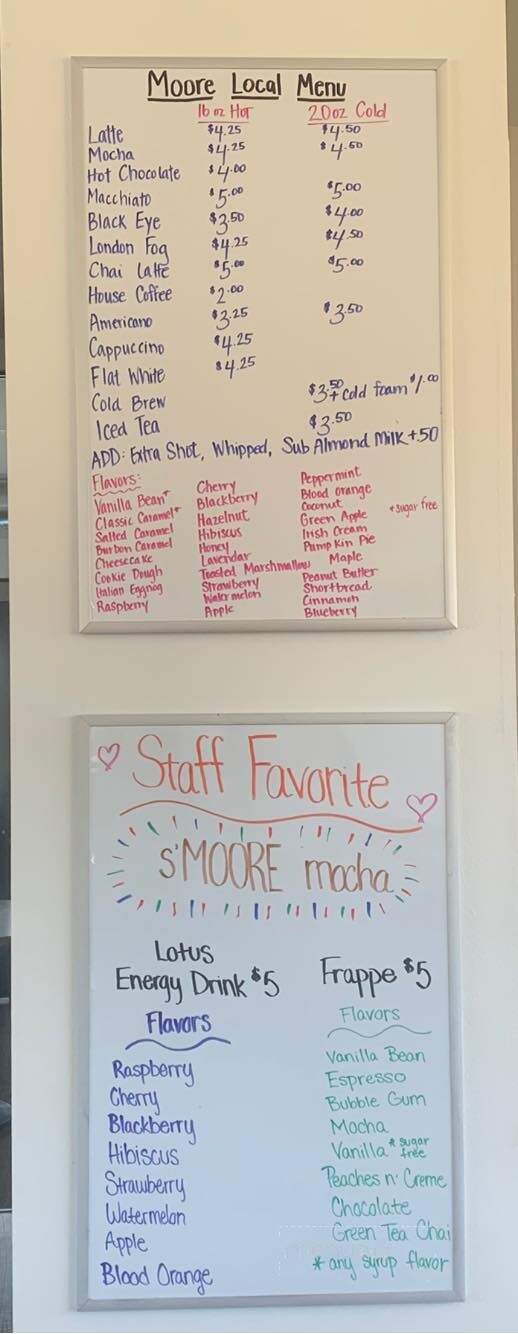 Moore Local Menu
16 oz Hot 20oz Cold
Latte $4.25 $4.50
Mocha $4.25 $4.50
Hot Chocolate $4.00
Macchiato $5.00 $5.00
Black Eye $3.50 $4.00
London Fog $4.25 $4.50
Chai Latte $5.00 $5.00
House Coffee $2.00
Americano $3.25 $3.50
Cappuccino $4.25
Flat White $4.25
Cold Brew $3.50 + cold foam $1.00
Iced Tea $3.50
ADD: Extra Shot, Whipped, Sub Almond Milk +50
Flavors:
Vanilla Bean*
Classic Caramel*
Salted Caramel
Burbon Caramel
Cheesecake
Cookie Dough
Italian Eggnog
Raspberry
Cherry
Blackberry
Hazelnut
Hibiscus
Honey
Lavendar
Toasted Marshmallow
Strawberry
Watermelon
Apple
Peppermint
Blood orange
Coconut
Green Apple
Irish Cream
Pumpkin Pie
Maple
Peanut Butter
Shortbread
Cinnamon
Blueberry
*sugar free
Staff Favorite
s'MOORE mocha
Lotus
Energy Drink $5
Flavors
Raspberry
Cherry
Blackberry
Hibiscus
Strawberry
Watermelon
Apple
Blood Orange
Frappe $5
Flavors
Vanilla Bean
Espresso
Bubble Gum
Mocha
Vanilla *sugar free
Peaches n' Creme
Chocolate
Green Tea Chai
*any syrup flavor